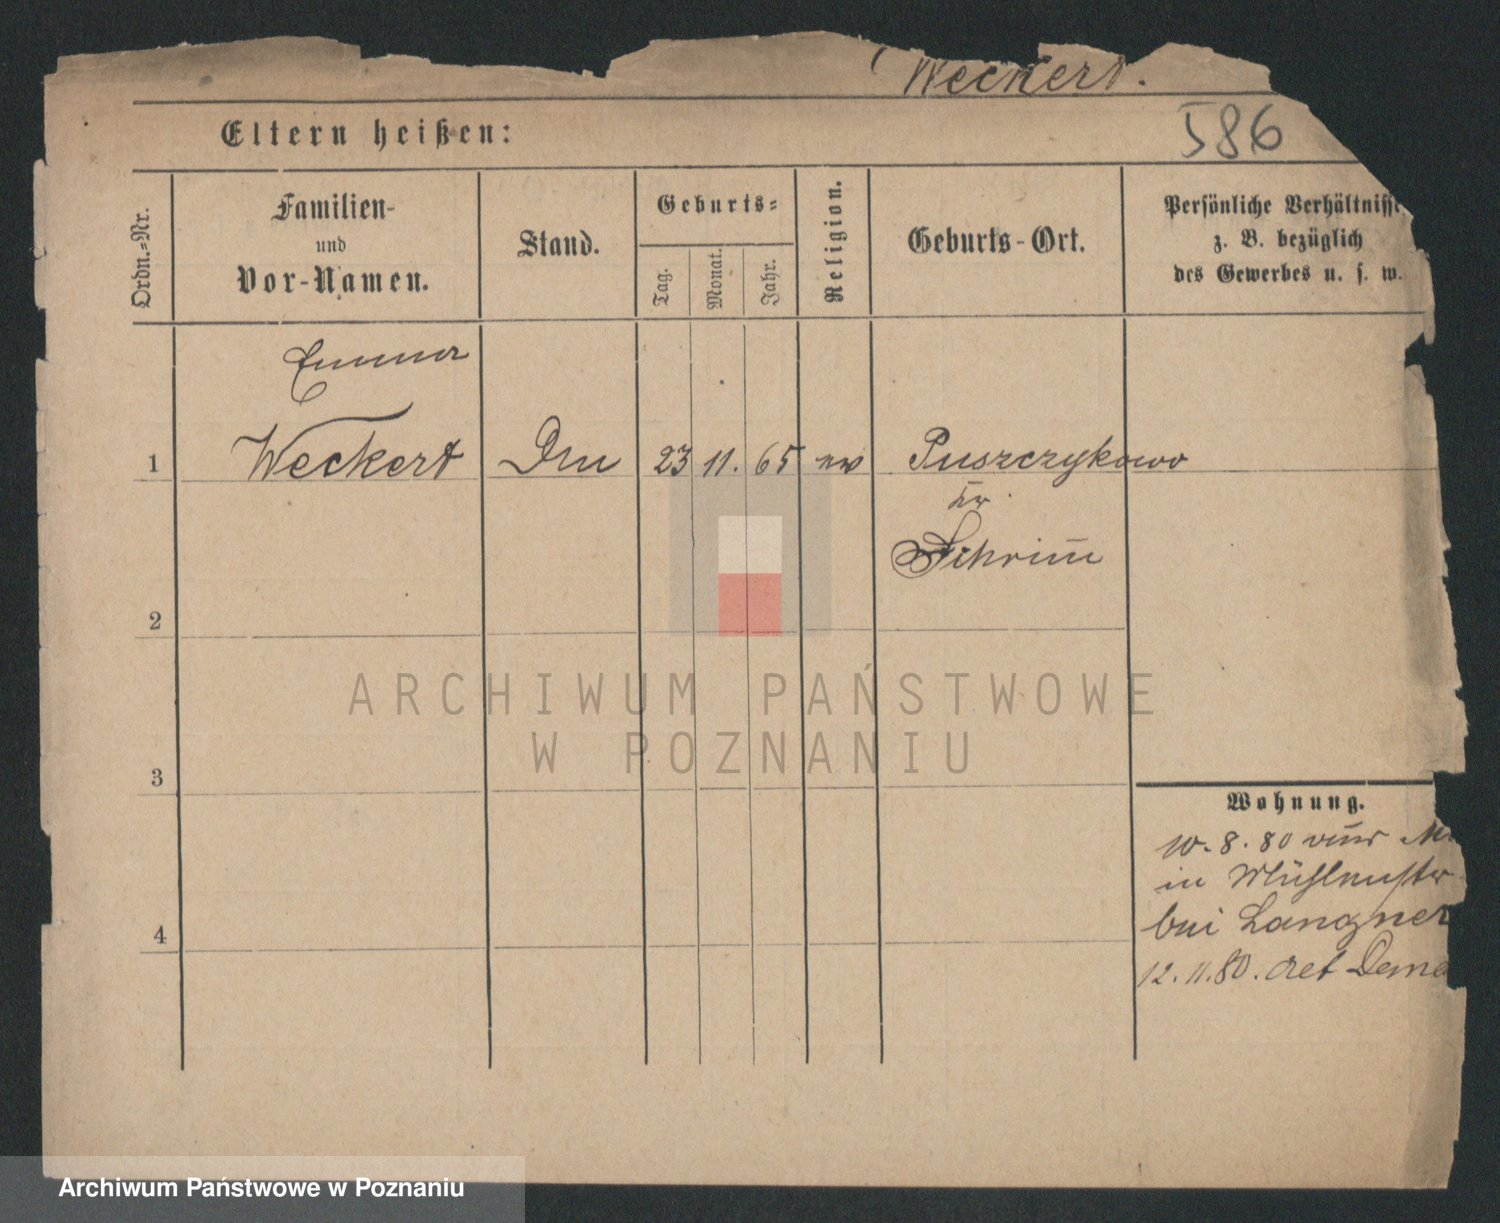 Weckert.
586
Eltern heißen:
Ordn.-Nr.
Familien-
und
Vor-Namen.
Stand.
Geburts-
Tag.
Monat.
Jahr.
Religion.
Geburts-Ort.
Persönliche Verhältnisse
z. B. bezüglich
des Gewerbes u. s. w.
Emma
1 Weckert 23 11. 65 ev Puszczykowo
Kr
Schrim̄
2
3
4
Wohnung.
10. 8. 80 von
in Mühlenstr
bei Langner
12. 11. 80. ret
ARCHIWUM PAŃSTWOWE
W POZNANIU
Archiwum Państwowe w Poznaniu